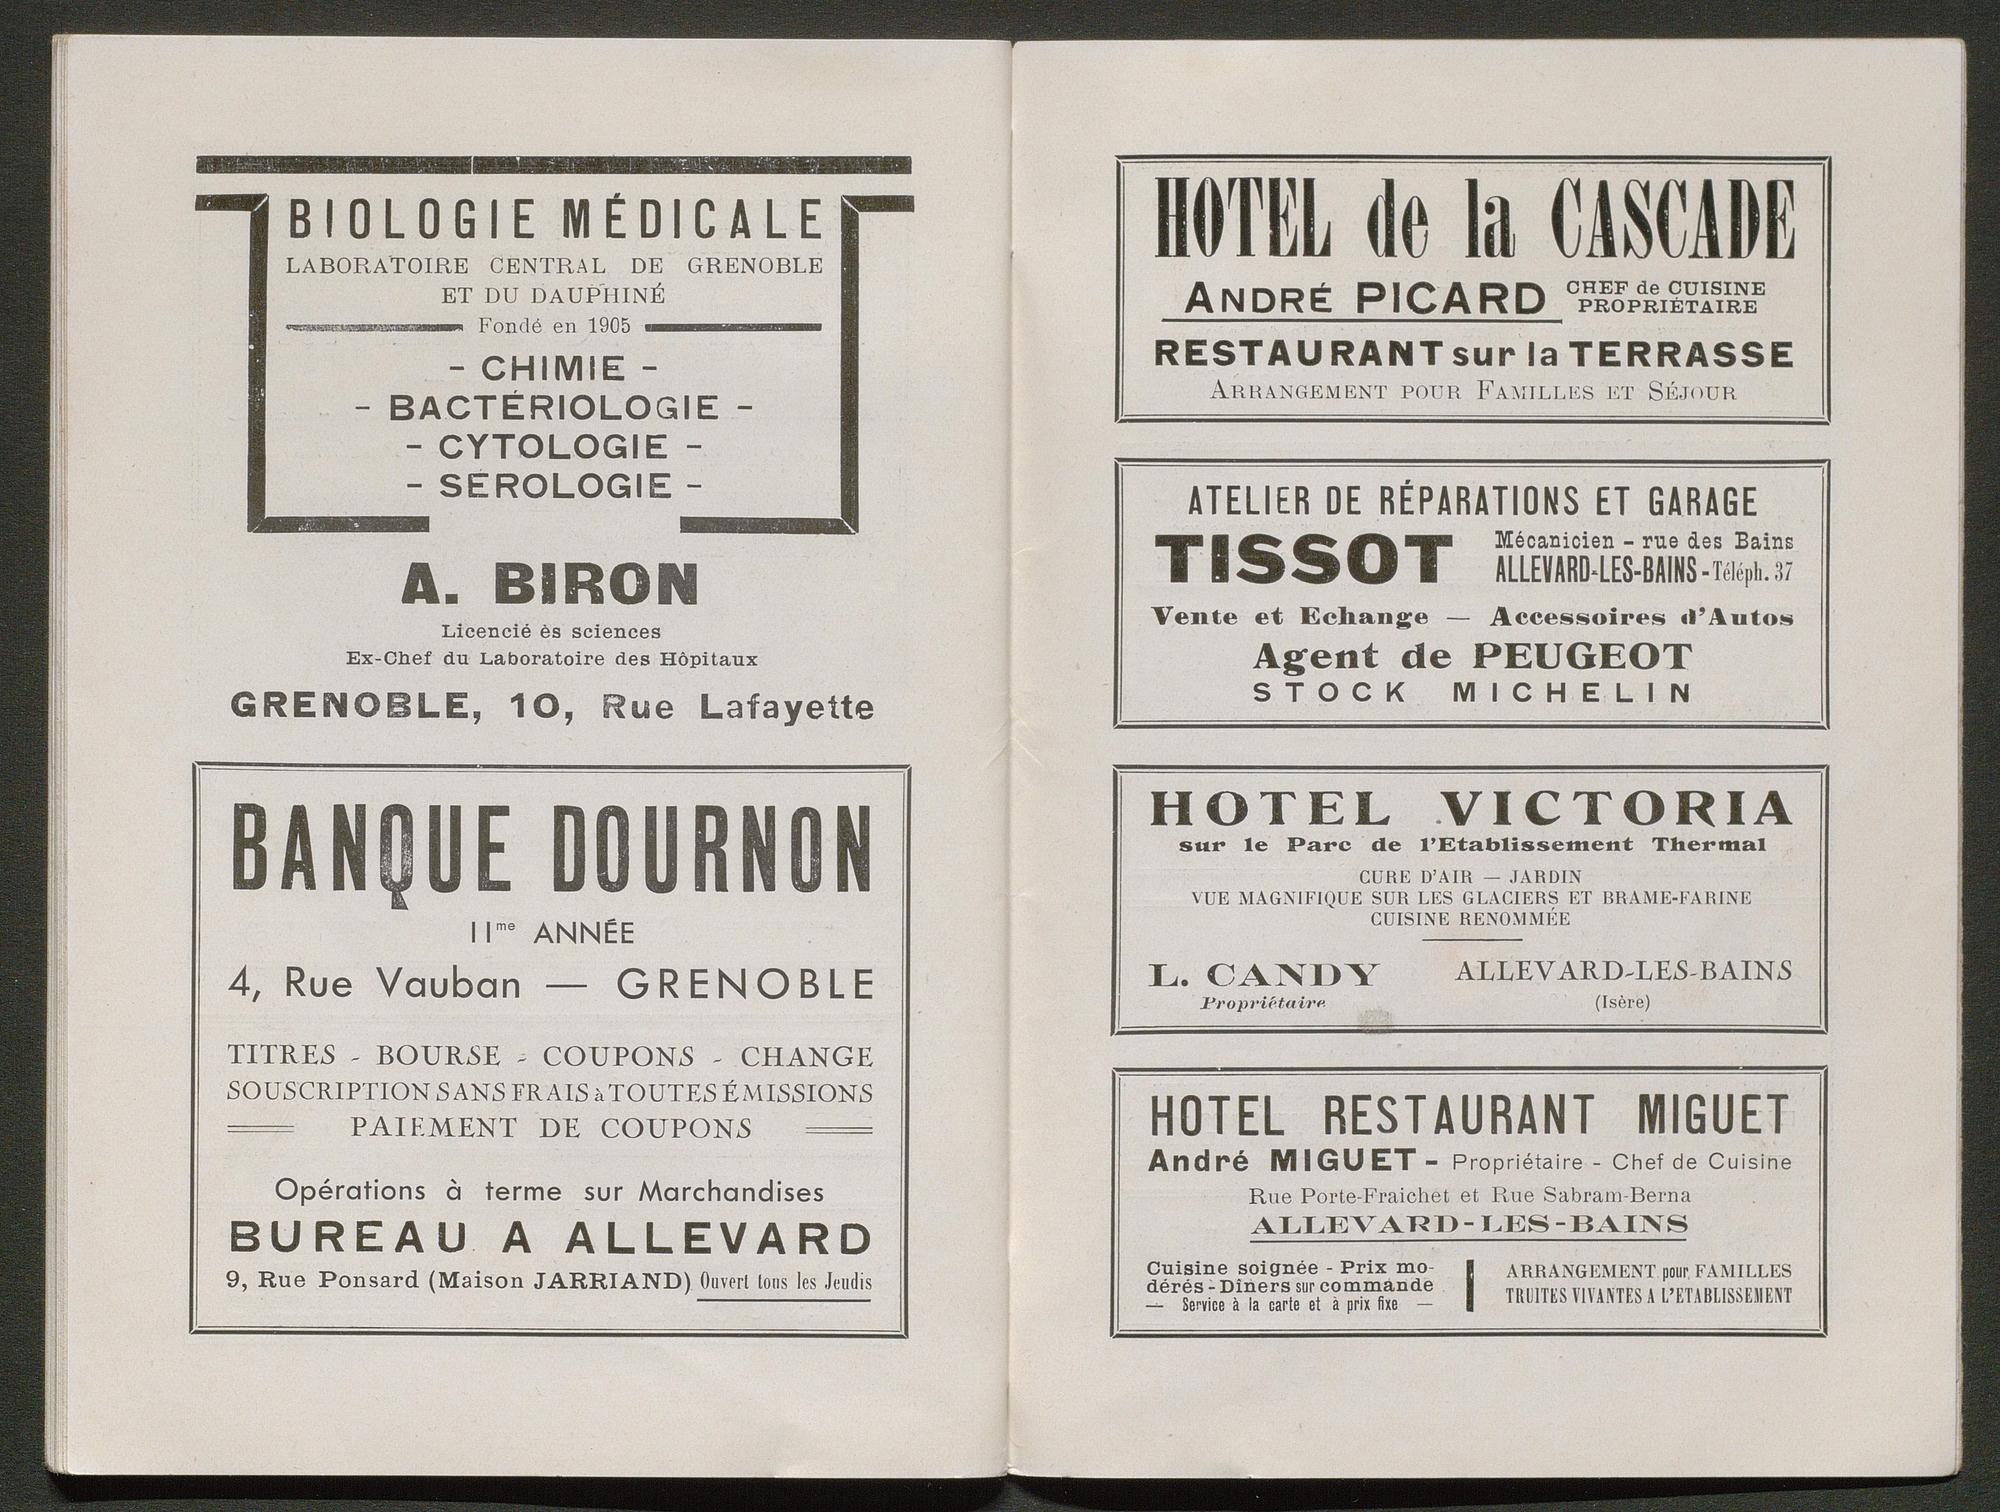 BIOLOGIE MÉDICALE
LABORATOIRE CENTRAL DE GRENOBLE
ET DU DAUPHINÉ
Fondé en 1905
- CHIMIE -
- BACTÉRIOLOGIE -
- CYTOLOGIE -
- SÉROLOGIE -
A. BIRON
Licencié ès sciences
Ex-Chef du Laboratoire des Hôpitaux
GRENOBLE, 10, Rue Lafayette
BANQUE DOURNON
11me ANNÉE
4, Rue Vauban — GRENOBLE
TITRES - BOURSE - COUPONS - CHANGE
SOUSCRIPTION SANS FRAIS à TOUTES ÉMISSIONS
PAIEMENT DE COUPONS
Opérations à terme sur Marchandises
BUREAU A ALLEVARD
9, Rue Ponsard (Maison JARRIAND) Ouvert tous les Jeudis
HOTEL de la CASCADE
ANDRÉ PICARD CHEF de CUISINE
PROPRIÉTAIRE
RESTAURANT sur la TERRASSE
ARRANGEMENT POUR FAMILLES ET SÉJOUR
ATELIER DE RÉPARATIONS ET GARAGE
TISSOT Mécanicien - rue des Bains
ALLEVARD-LES-BAINS - Téléph. 37
Vente et Echange — Accessoires d'Autos
Agent de PEUGEOT
STOCK MICHELIN
HOTEL VICTORIA
sur le Parc de l'Etablissement Thermal
CURE D'AIR — JARDIN
VUE MAGNIFIQUE SUR LES GLACIERS ET BRAME-FARINE
CUISINE RENOMMÉE
L. CANDY ALLEVARD-LES-BAINS
Propriétaire (Isère)
HOTEL RESTAURANT MIGUET
André MIGUET - Propriétaire - Chef de Cuisine
Rue Porte-Fraichet et Rue Sabram-Berna
ALLEVARD-LES-BAINS
Cuisine soignée - Prix mo-
dérés - Dîners sur commande
— Service à la carte et à prix fixe —
ARRANGEMENT pour FAMILLES
TRUITES VIVANTES A L'ETABLISSEMENT